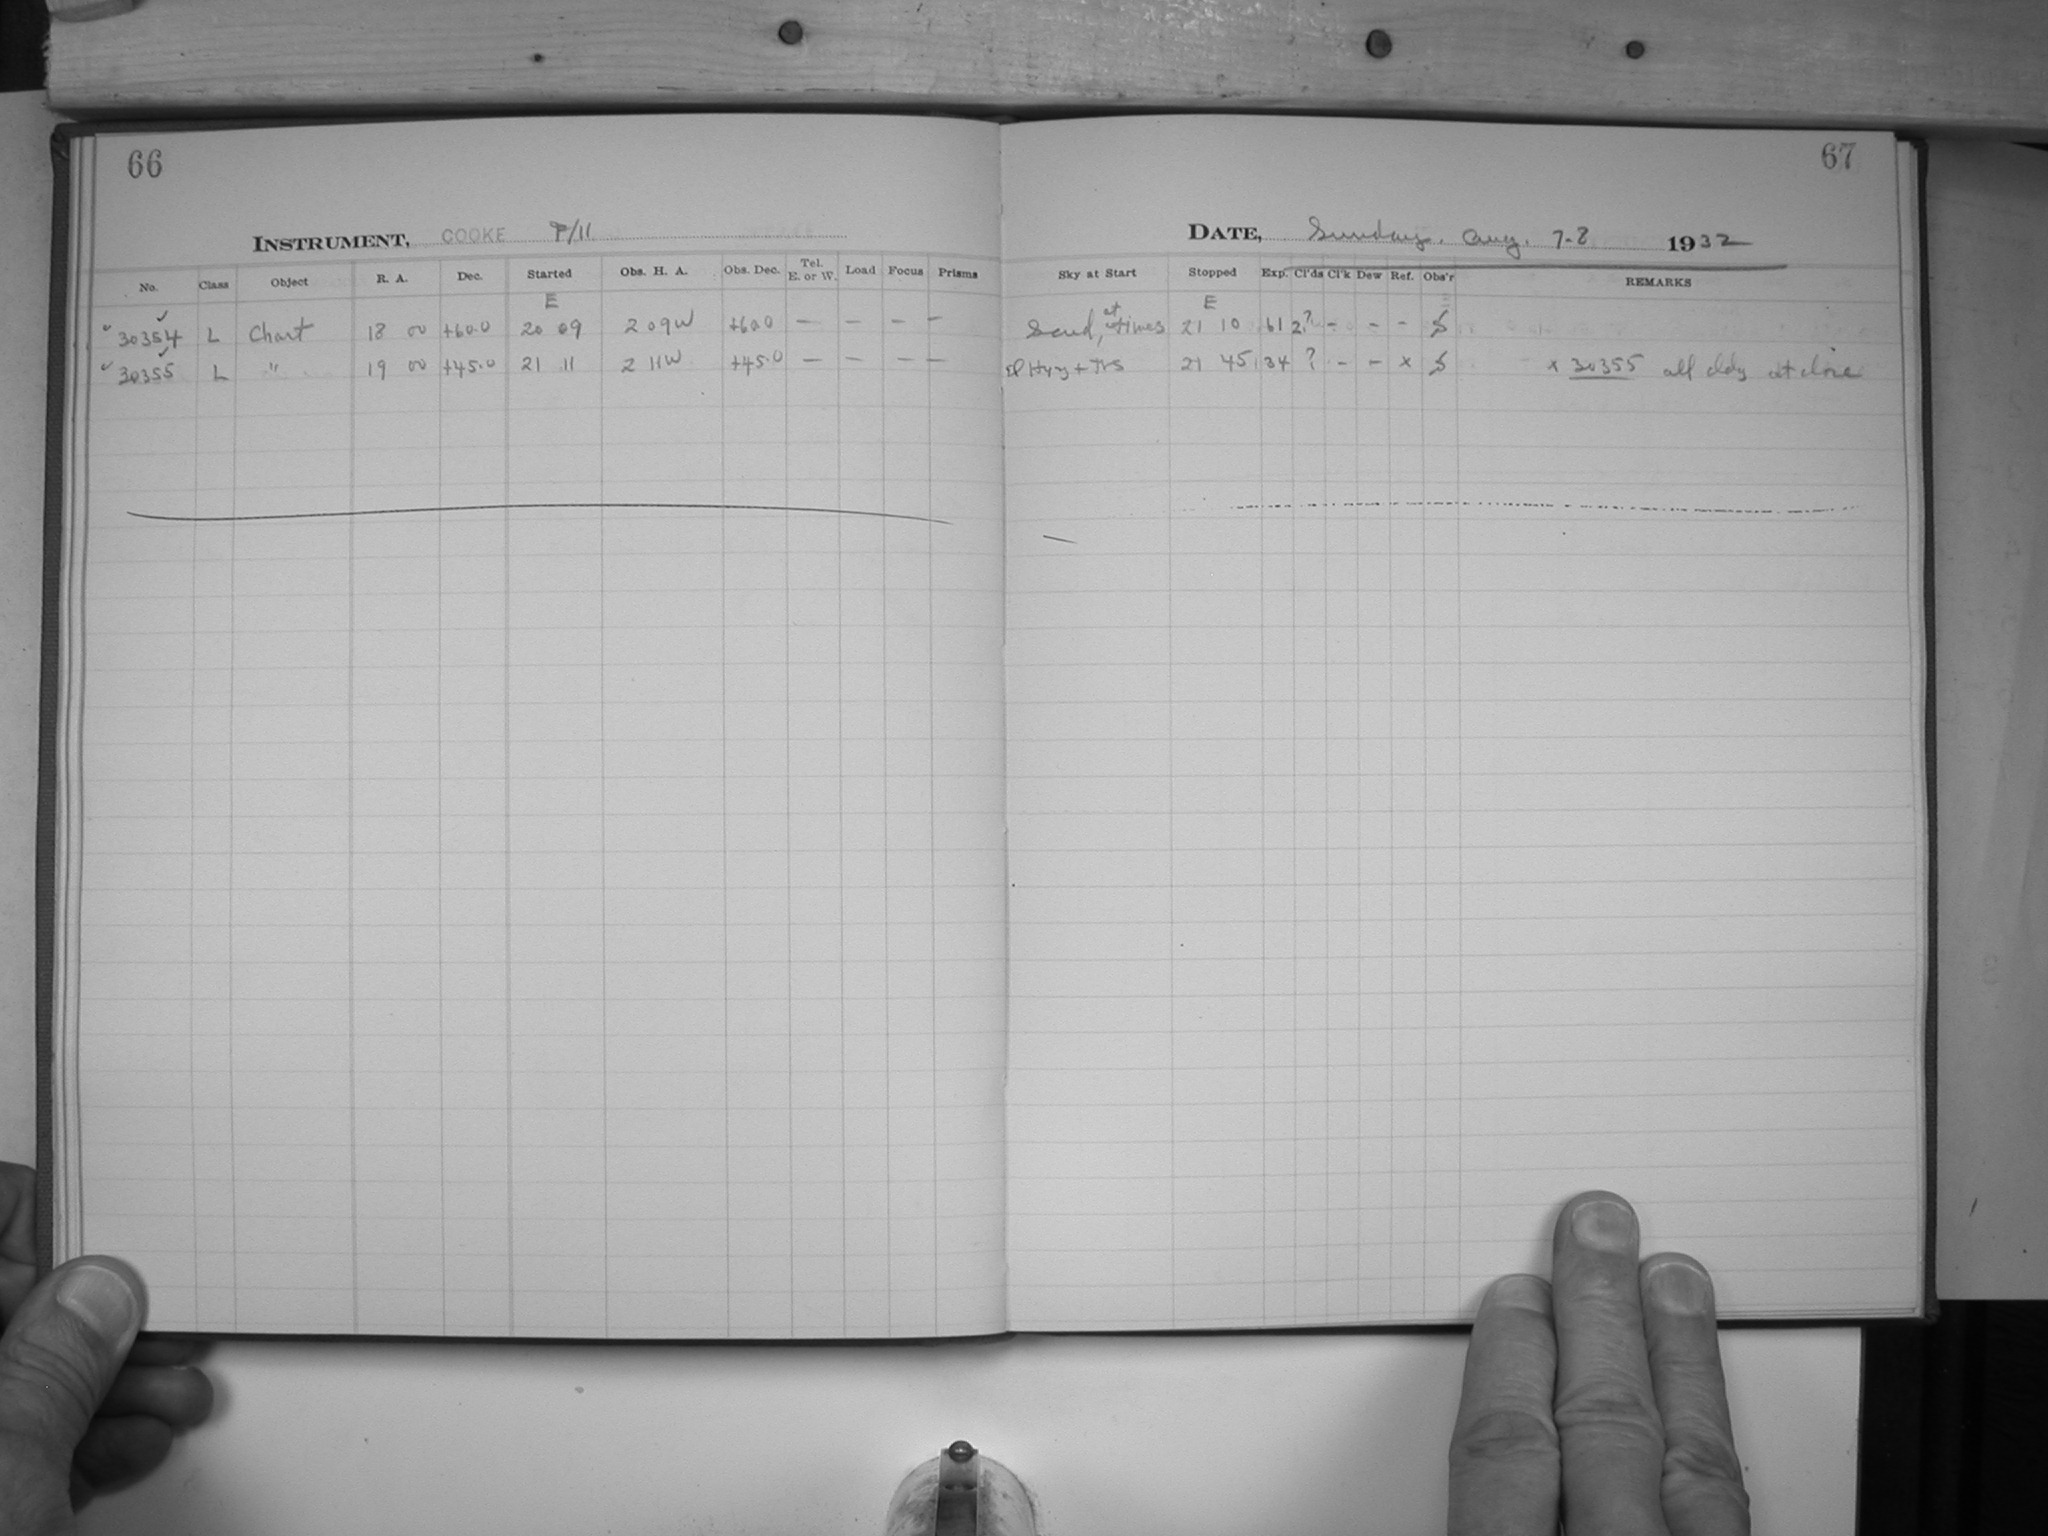 66
INSTRUMENT, COOKE F/11
No. Class Object R. A. Dec. Started Obs. H. A. Obs. Dec. Tel. E. or W. Load Focus Prisms
E
✓ 30354 ✓ L Chart 18 00 +60.0 20 09 2 09W +60.0 — — — —
✓ 30355 ✓ L " 19 00 +45.0 21 11 2 11W +45.0 — — — —
67
DATE, Sunday. Aug. 7-8 1932
Sky at Start Stopped Exp. Cl'ds Cl'k Dew Ref. Obs'r REMARKS
E
at times 21 10 61 2? - - - S
Hzy + 21 45 34 ? - - x S x 30355 all cldy at close